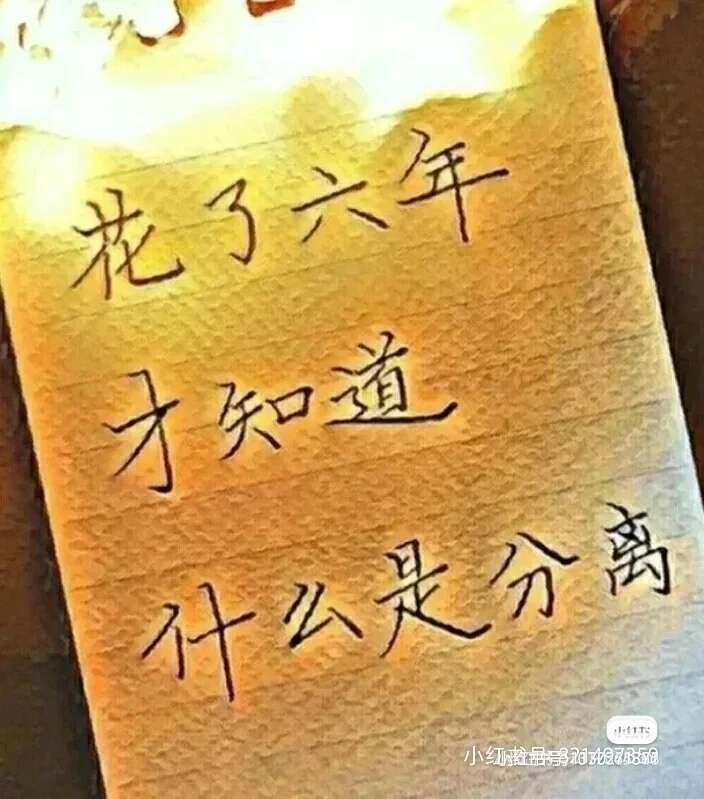 花了六年
才知道
什么是分离
小红书
小红书号